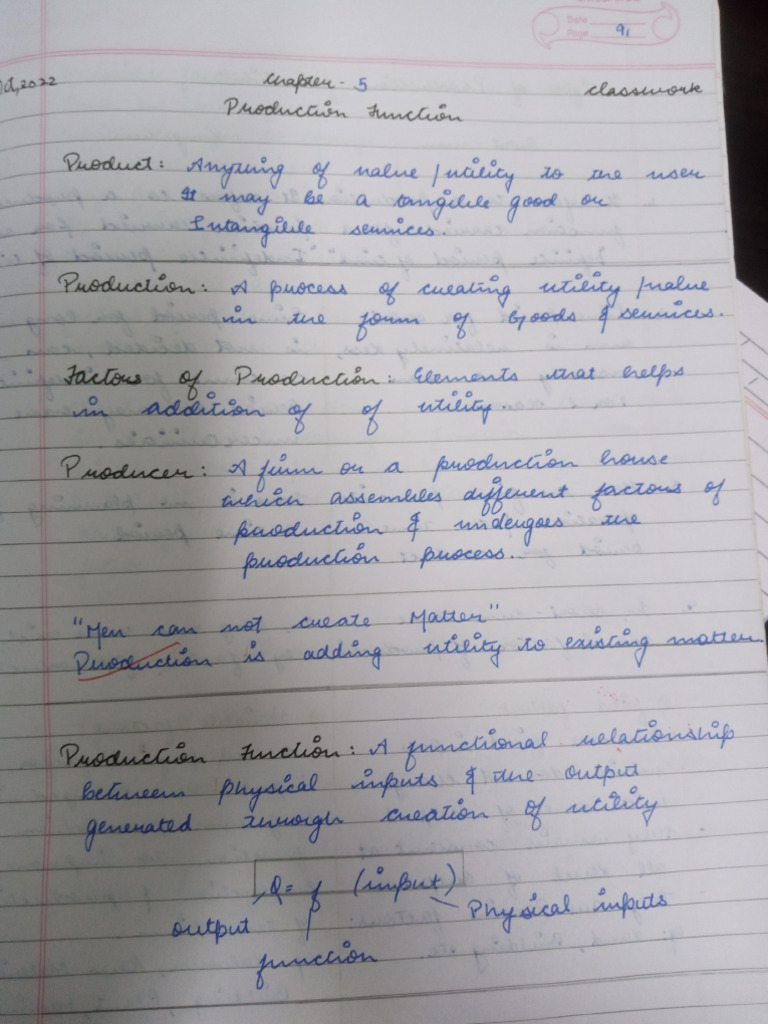 Date
Page 91
Oct, 2022 Chapter - 5 classwork
Production Function
Product: Anything of value / utility to the user
It may be a tangible good or
Intangible services.
Production: A process of creating utility / value
in the form of Goods & services.
Factors of Production: Elements that helps
in addition of of utility.
Producer: A firm or a production house
which assembles different factors of
production & undergoes the
production process.
"Men can not create Matter"
Production is adding utility to existing matter.
Production Function: A functional relationship
between physical inputs & the output
generated through creation of utility
Q = f (input)
output Physical inputs
function